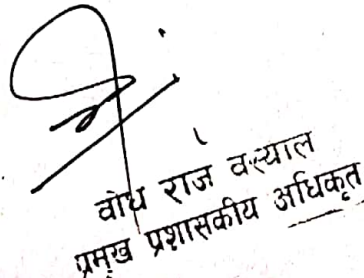 वोध राज वस्याल
प्रमुख प्रशासकीय अधिकृत